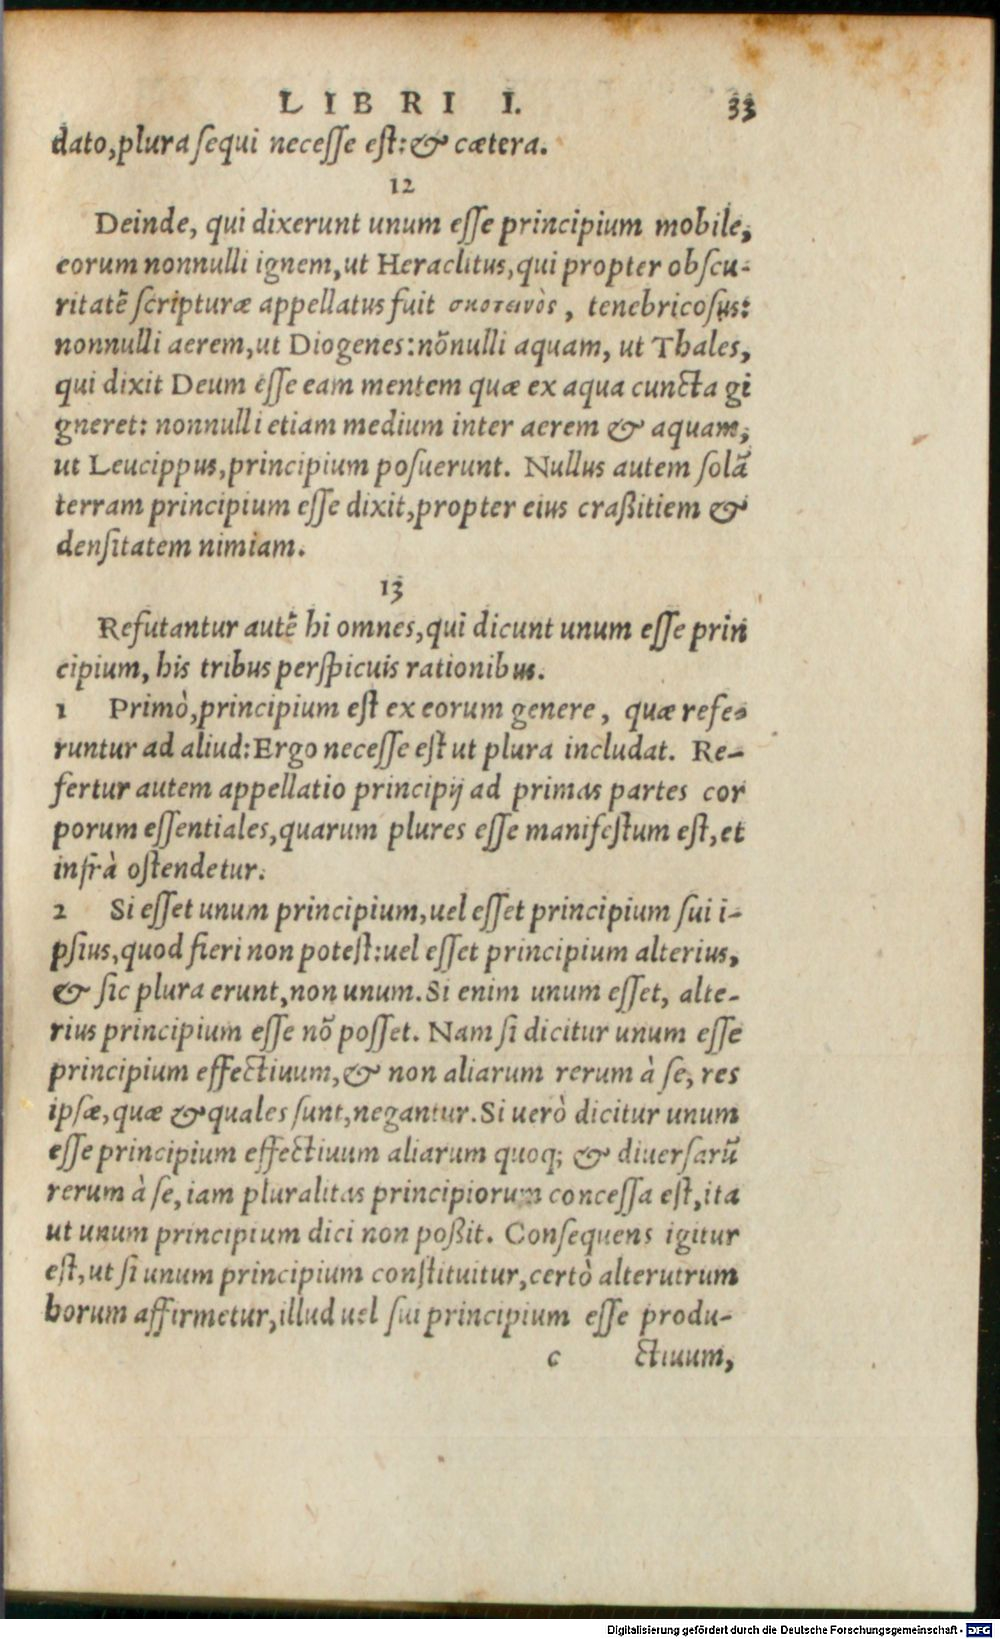 LIBRI I. 33
dato, plura sequi necesse est: & cætera.
12
Deinde, qui dixerunt unum esse principium mobile,
eorum nonnulli ignem, ut Heraclitus, qui propter obscu-
ritatē scripturæ appellatus fuit σκοτεινὸς, tenebricosus:
nonnulli aerem, ut Diogenes: nōnulli aquam, ut Thales,
qui dixit Deum esse eam mentem quæ ex aqua cuncta gi
gneret: nonnulli etiam medium inter aerem & aquam,
ut Leucippus, principium posuerunt. Nullus autem solā
terram principium esse dixit, propter eius craßitiem &
densitatem nimiam.
13
Refutantur autē hi omnes, qui dicunt unum esse prin
cipium, his tribus perspicuis rationibus.
1 Primò, principium est ex eorum genere, quæ refe-
runtur ad aliud: Ergo necesse est ut plura includat. Re-
fertur autem appellatio principij ad primas partes cor
porum essentiales, quarum plures esse manifestum est, et
infrà ostendetur.
2 Si esset unum principium, uel esset principium sui i-
psius, quod fieri non potest: uel esset principium alterius,
& sic plura erunt, non unum. Si enim unum esset, alte-
rius principium esse nō posset. Nam si dicitur unum esse
principium effectiuum, & non aliarum rerum à se, res
ipsæ, quæ & quales sunt, negantur. Si uerò dicitur unum
esse principium effectiuum aliarum quoq; & diuersarū
rerum à se, iam pluralitas principiorum concessa est, ita
ut unum principium dici non poßit. Consequens igitur
est, ut si unum principium constituitur, certò alterutrum
horum affirmetur, illud uel sui principium esse produ-
c ctiuum,
Digitalisierung gefördert durch die Deutsche Forschungsgemeinschaft - DFG